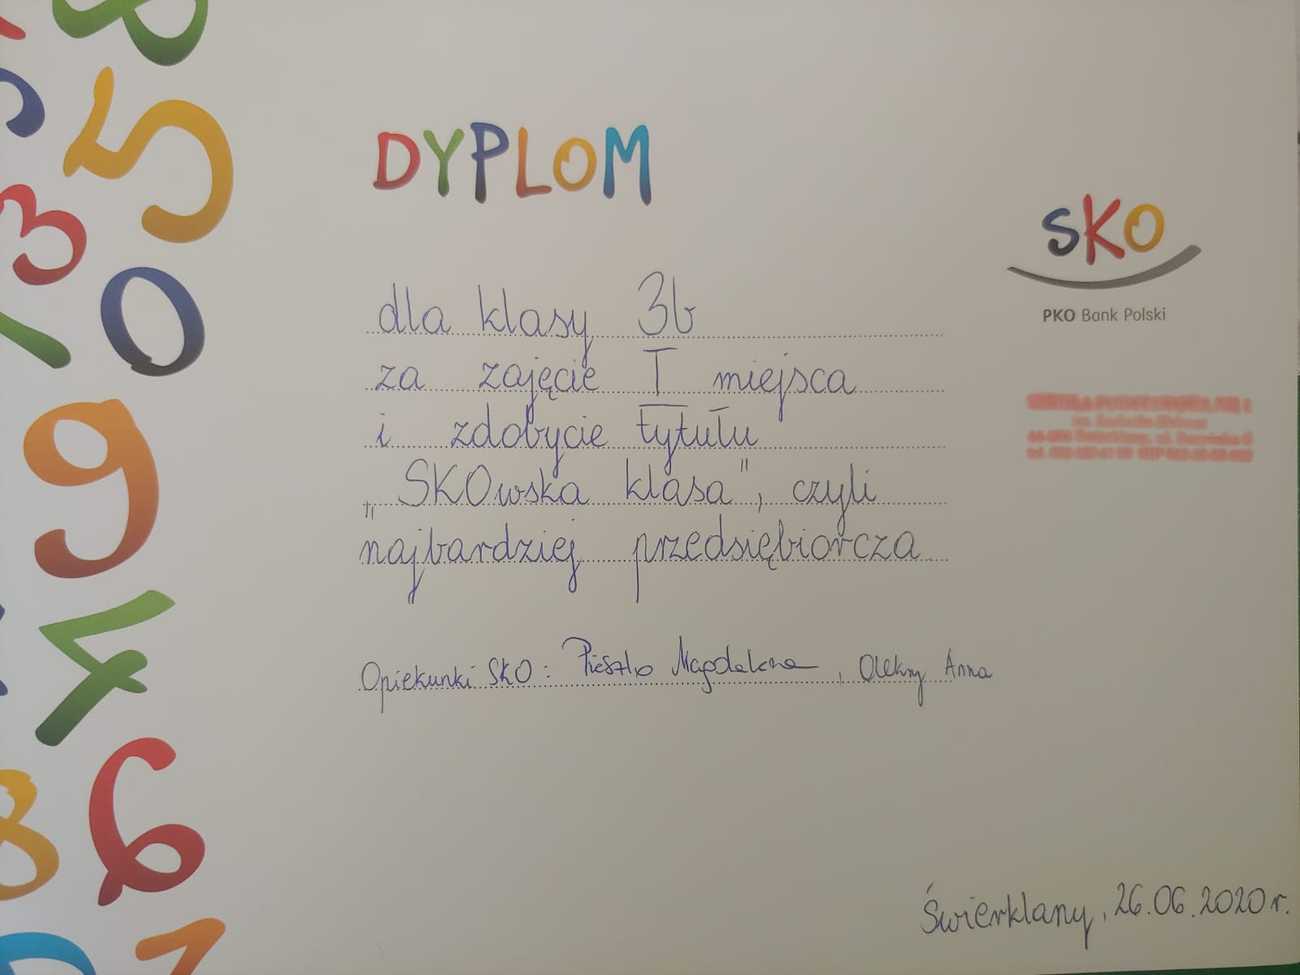 DYPLOM
SKO
PKO Bank Polski
dla klasy 3b
za zajęcie I miejsca
i zdobycie tytułu
„SKOwska klasa", czyli
najbardziej przedsiębiorcza
Opiekunki SKO: Magdalena, Anna
Świerklany, 26.06.2020 r.